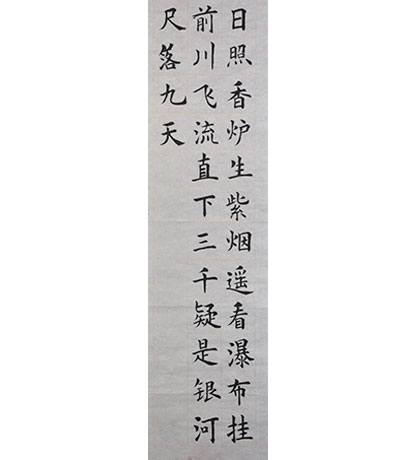 日照香炉生紫烟遥看瀑布挂
前川飞流直下三千疑是银河
尺落九天